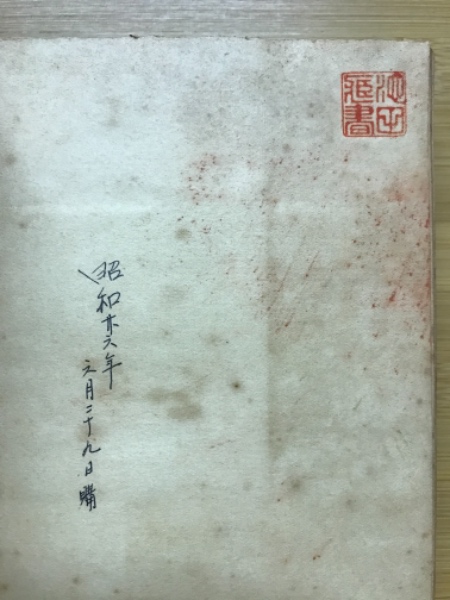 池田
蔵書
昭和廿六年
月二十九日購